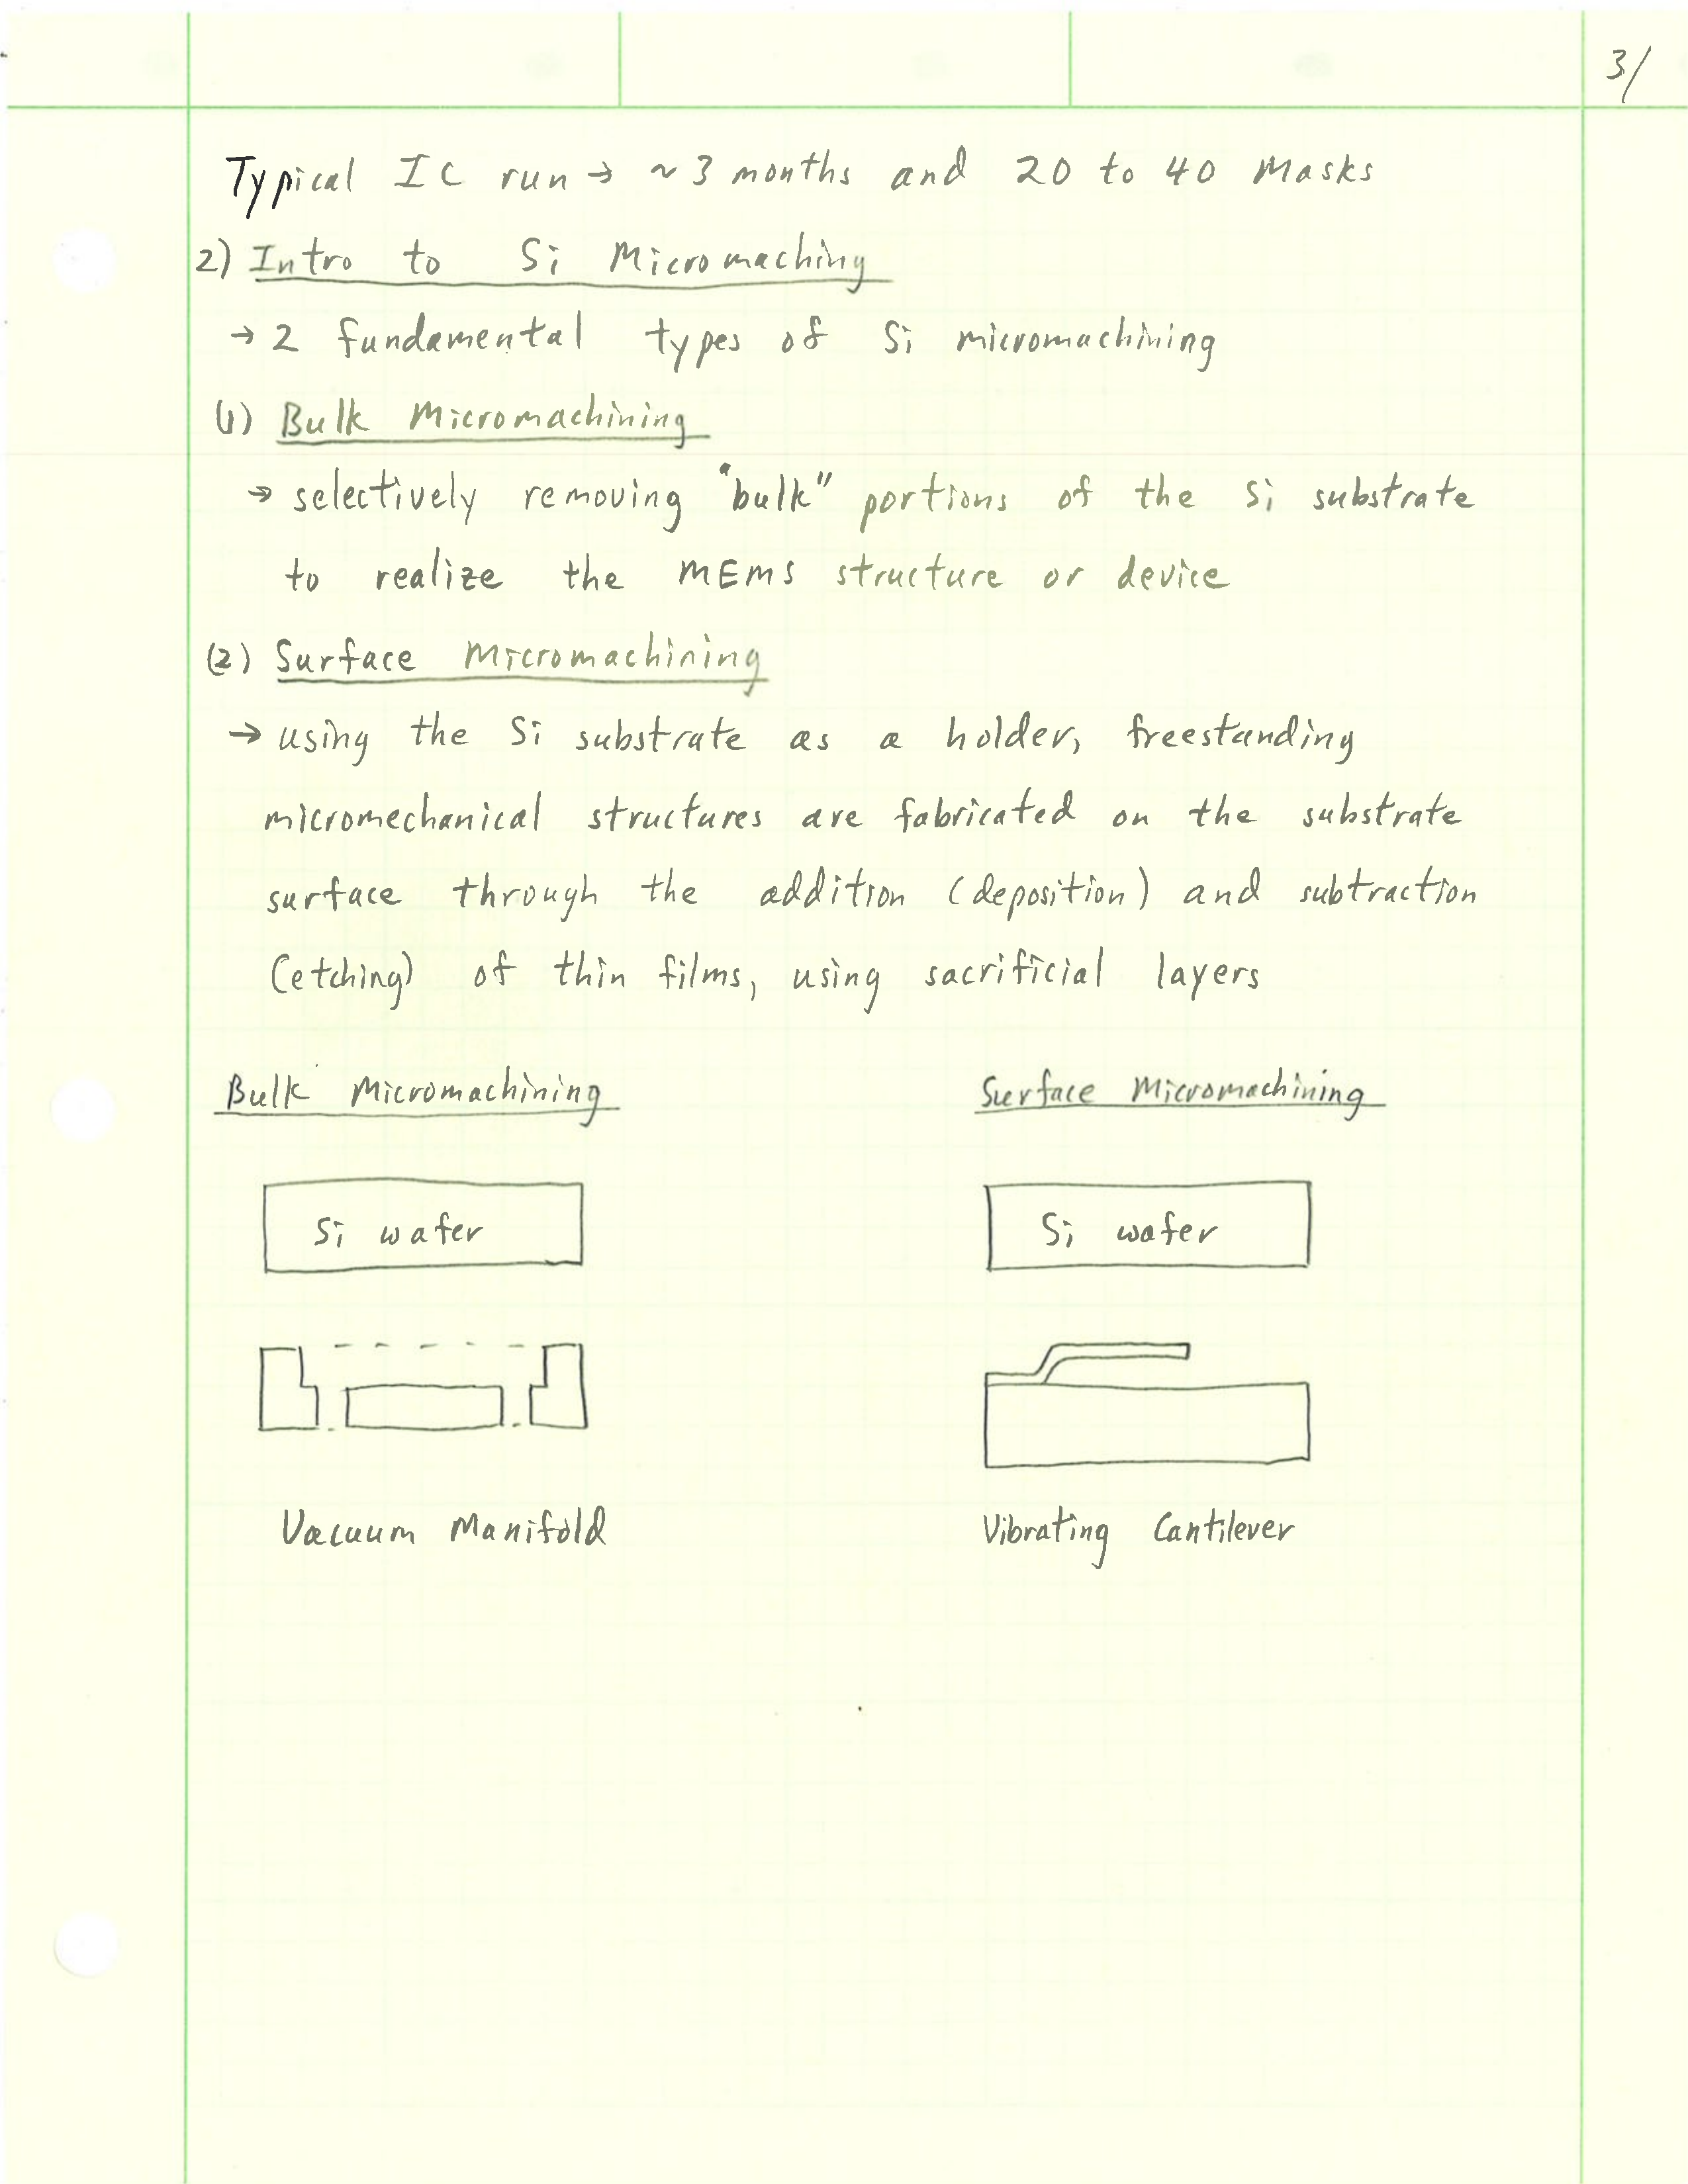 3/
Typical IC run → ~3 months and 20 to 40 Masks
2) Intro to Si Micromaching
→ 2 fundamental types of Si micromachining
(1) Bulk Micromachining
→ selectively removing "bulk" portions of the Si substrate
to realize the MEMS structure or device
(2) Surface Micromachining
→ using the Si substrate as a holder, freestanding
micromechanical structures are fabricated on the substrate
surface through the addition (deposition) and subtraction
(etching) of thin films, using sacrificial layers
Bulk Micromachining
Surface Micromachining
Si wafer
Si wafer
Vacuum Manifold
Vibrating Cantilever